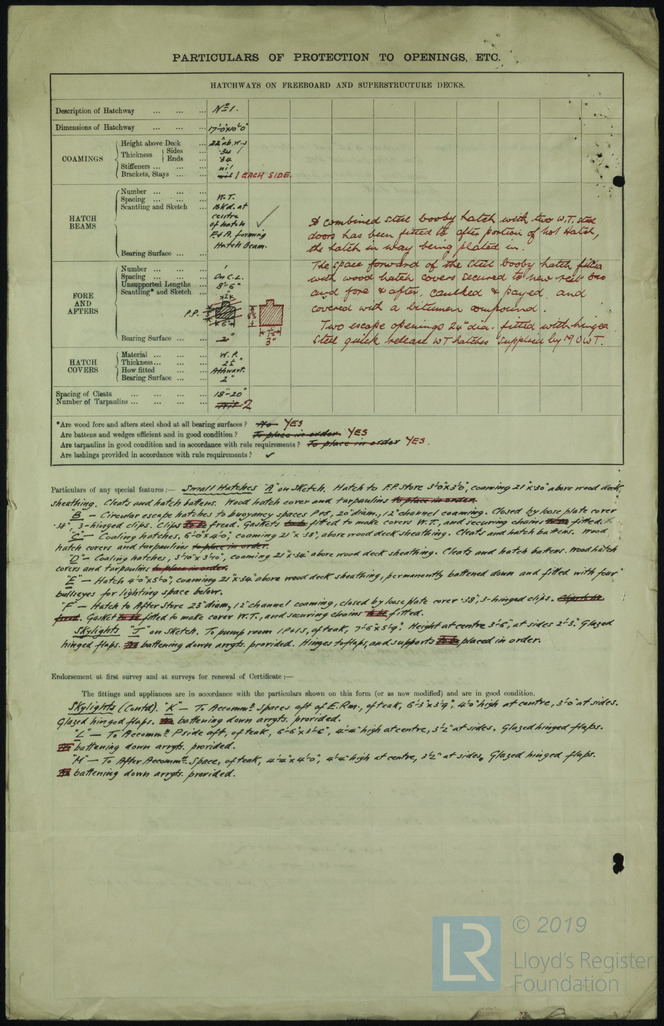 PARTICULARS OF PROTECTION TO OPENINGS, ETC.
HATCHWAYS ON FREEBOARD AND SUPERSTRUCTURE DECKS.
Description of Hatchway ... ... ... No 1.
Dimensions of Hatchway ... ... 17'0"x10'0"
COAMINGS
Height above Deck ... 22"
Thickness Sides ... .34
Ends ... .34
Stiffeners ... ... nil
Brackets, Stays ... ... nil 1 EACH SIDE.
HATCH BEAMS
Number ... ... ... W.T.
Spacing ... ... ... Bkd. at
Scantling and Sketch ... centre
of hatch ✓
F & A. forming
Hatch Beam.
Bearing Surface ... ...
FORE AND AFTERS
Number ... ... ... 1
Spacing ... ... ... On C.L.
Unsupported Lengths ... 8'-6"
Scantling* and Sketch ...
P.P.
Bearing Surface ... ... 2" 3"
HATCH COVERS
Material ... ... ... W.P.
Thickness ... ... ... 2½"
How fitted ... ... Athwart.
Bearing Surface ... 2"
Spacing of Cleats ... ... ... ... 18"-20"
Number of Tarpaulins ... ... ... ... Nil 2
A combined steel booby hatch with two W.T. steel
doors has been fitted to after portion of No1 Hatch,
the hatch in way being plated in.
The space forward of the steel booby hatch fitted
with wood hatch covers secured to new steel
and fore & after, caulked & payed and
covered with a bitumen compound.
Two escape openings 24" dia. fitted with hinged
steel quick release WT hatches supplied by M.O.W.T.
*Are wood fore and afters steel shod at all bearing surfaces? No YES
Are battens and wedges efficient and in good condition? To place in order. YES
Are tarpaulins in good condition and in accordance with rule requirements? To place in order YES.
Are lashings provided in accordance with rule requirements? ✓
Particulars of any special features:— Small Hatches "A" on Sketch. Hatch to F.P. Store 3'0"x3'0", coaming 21"x30" above wood deck
sheathing. Cleats and hatch battens. Wood hatch cover and tarpaulins to place in order.
"B" — Circular escape hatches to buoyancy spaces P&S, 20" diam, 12" channel coaming. Closed by loose plate cover
.38", 3-hinged clips. Clips to be freed. Gaskets to be fitted to make covers W.T., and securing chains to be fitted.
"C" — Coaling hatches, 6'-0"x4'0", coaming 21"x.38", above wood deck sheathing. Cleats and hatch battens. Wood
hatch covers and tarpaulins to place in order.
"D" — Coaling hatches, 3'10"x3'10", coaming 21"x.34" above wood deck sheathing. Cleats and hatch battens. Wood hatch
covers and tarpaulins to place in order.
"E" — Hatch 4'0"x5'0", coaming 21"x.34" above wood deck sheathing, permanently battened down and fitted with four
bullseyes for lighting space below.
"F" — Hatch to After Store 23" diam, 12" channel coaming, closed by loose plate cover .38", 3-hinged clips. Clips to be
freed. Gasket to be fitted to make cover W.T., and securing chains to be fitted.
Skylights "J" on Sketch. To pump room 1 P&1 S, of teak, 7'-6"x5'-9". Height at centre 3'-6", at sides 2'-3". Glazed
hinged flaps. No battening down arrgts. provided. Hinges to flaps, and supports to be placed in order.
Endorsement at first survey and at surveys for renewal of Certificate:—
The fittings and appliances are in accordance with the particulars shown on this form (or as now modified) and are in good condition.
Skylights (Contd). "K" — To Accommn. Spaces aft of E.Rm., of teak, 6'-3"x3'9", 4'0" high at centre, 3'-0" at sides.
Glazed hinged flaps. No battening down arrgts. provided.
"L" — To Accommn. P side aft, of teak, 6'-6"x3'-6", 4'-4" high at centre, 3'-2" at sides. Glazed hinged flaps.
No battening down arrgts. provided.
"M" — To After Accommn. Space, of teak, 4'-2"x4'-0", 4'-4" high at centre, 3'2" at sides. Glazed hinged flaps.
No battening down arrgts. provided.
LR © 2019
Lloyd's Register
Foundation